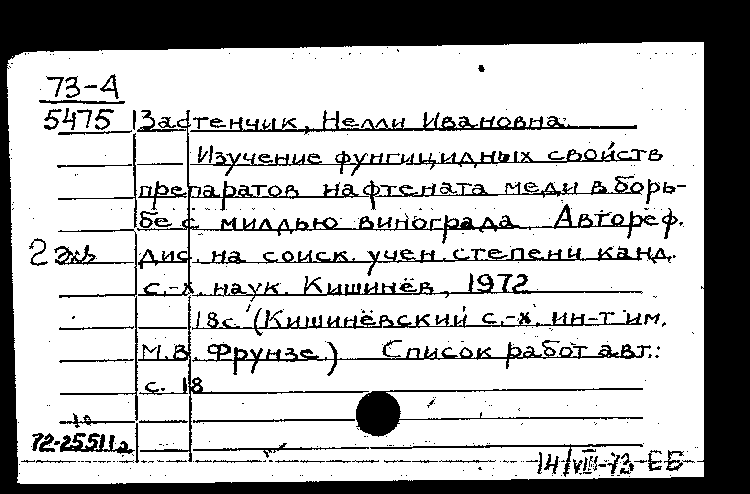 73-А
5475 Застенчик, Нелли Ивановна.
Изучение фунгицидных свойств
препаратов нафтената меди в борь-
бе с милдью винограда Автореф.
2 экз дис. на соиск. учен. степени канд.
с.-х. наук. Кишинёв, 1972
18с. (Кишинёвский с.-х. ин-т им.
М.В. Фрунзе) Список работ авт.:
с. 18
10
72-25511а
14/VIII-73 ЕБ